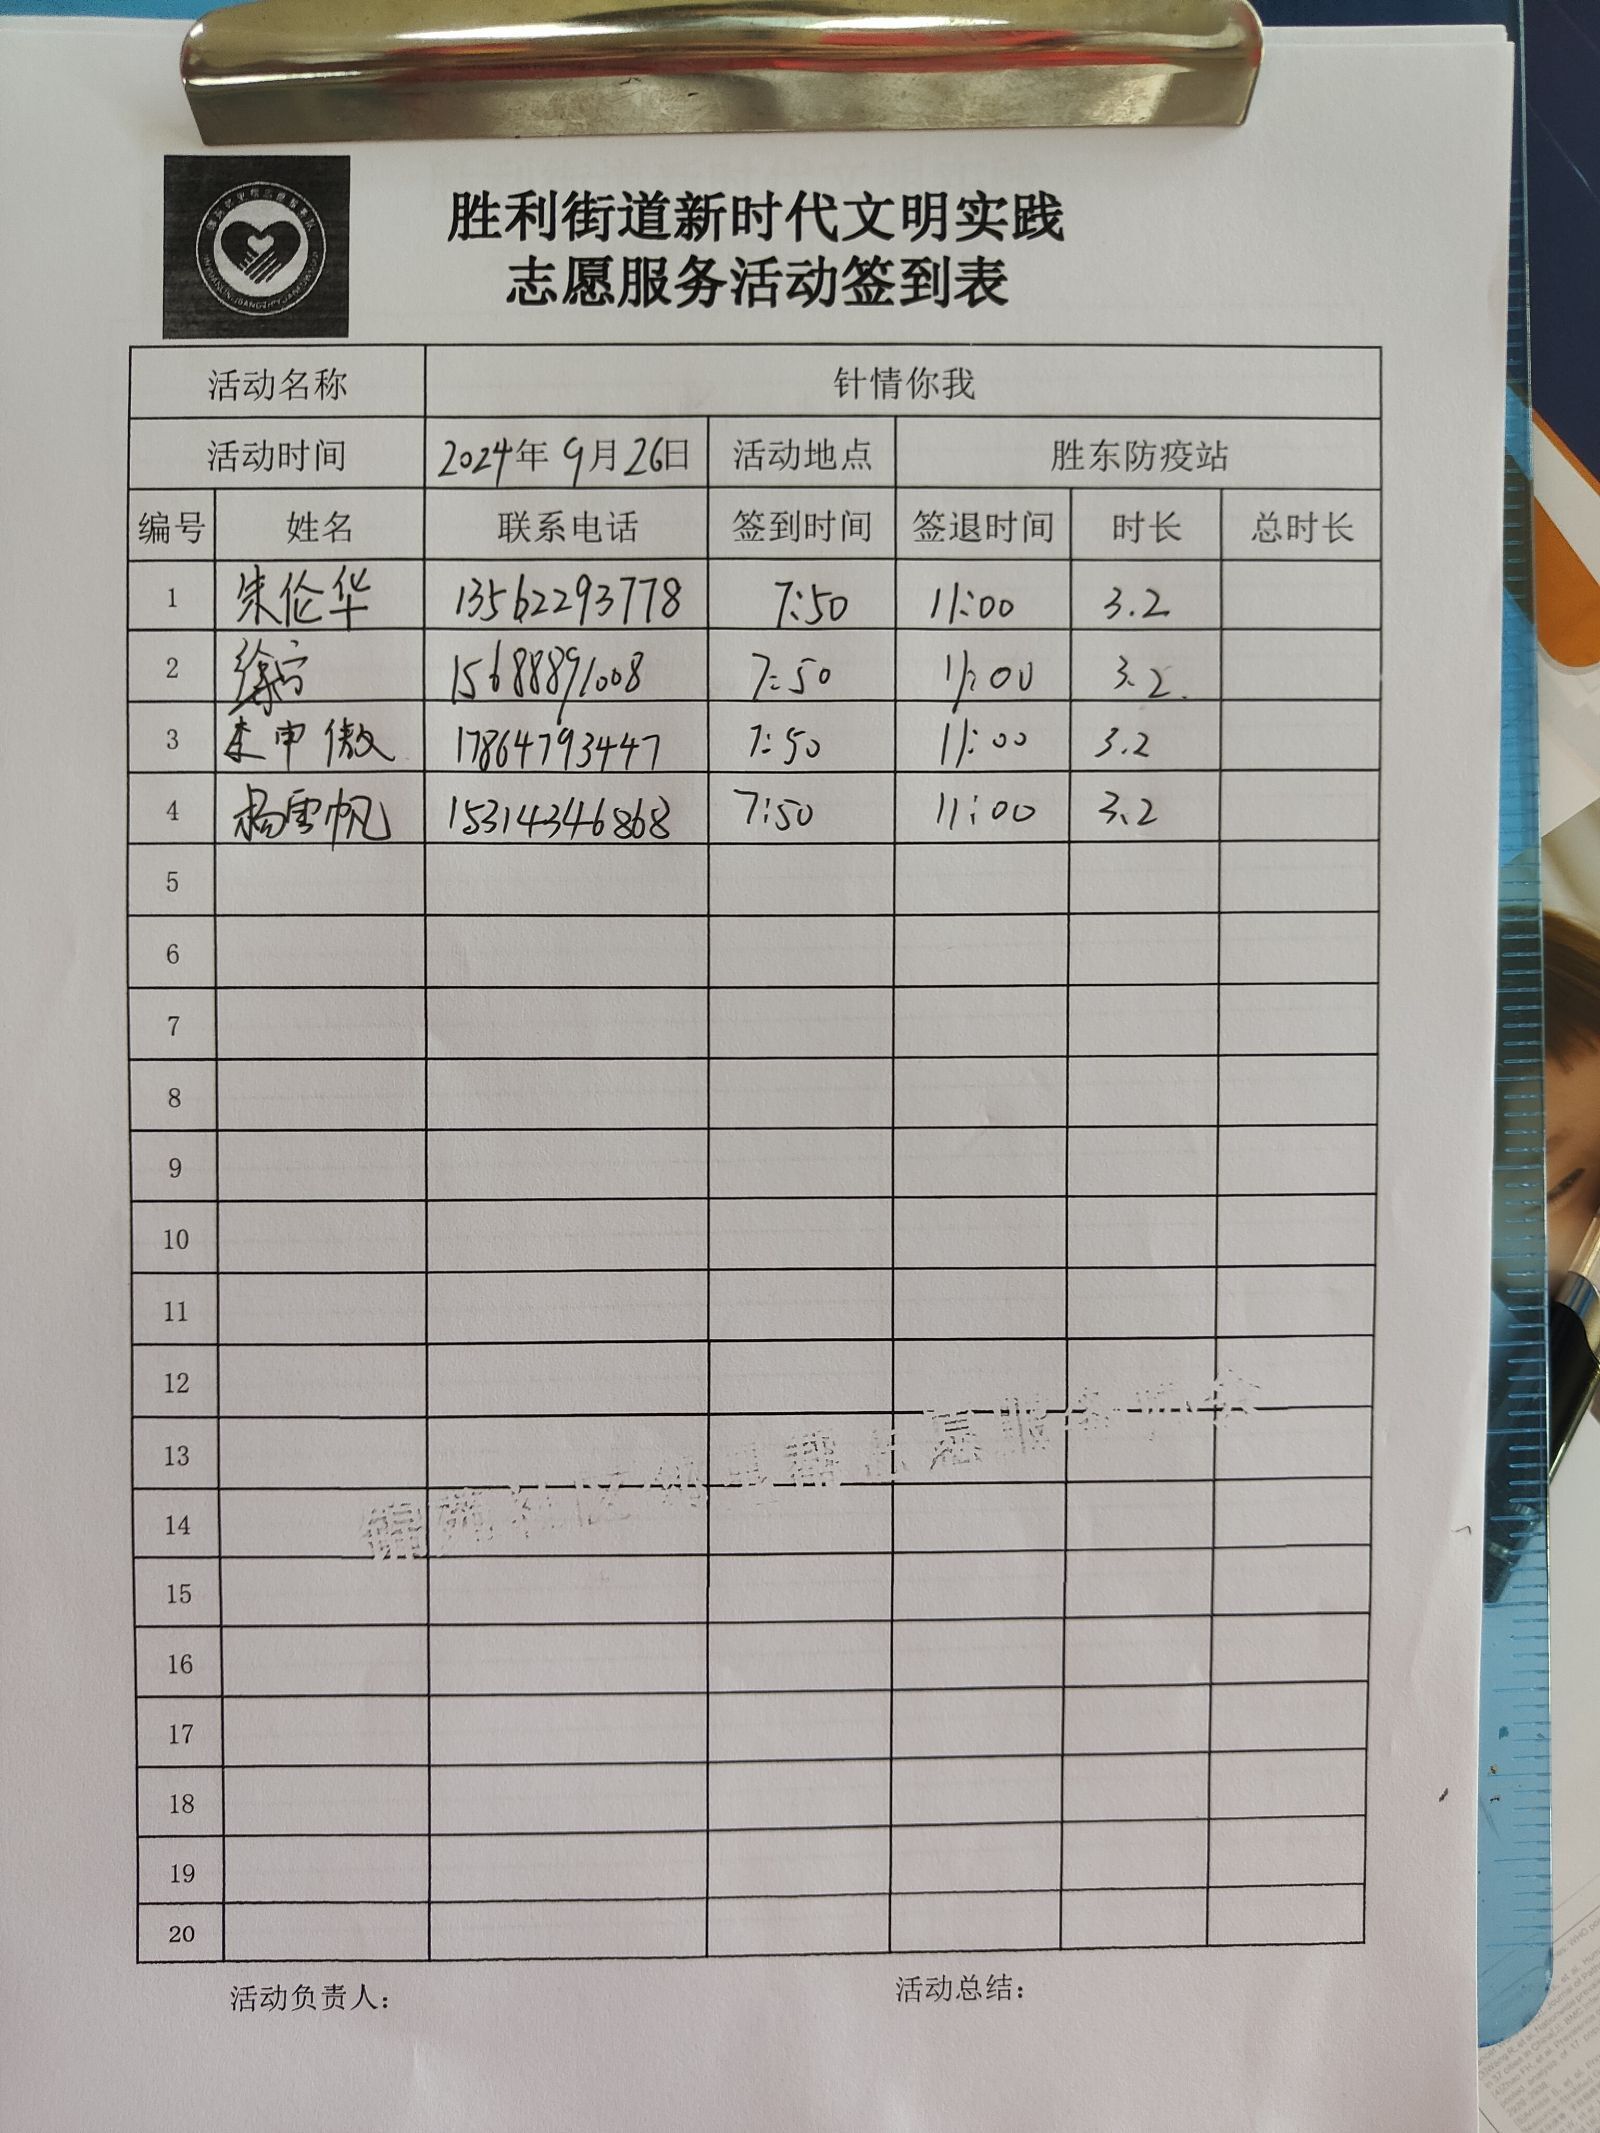 胜利街道新时代文明实践
志愿服务活动签到表
活动名称 针情你我
活动时间 2024年9月26日 活动地点 胜东防疫站
编号 姓名 联系电话 签到时间 签退时间 时长 总时长
1 朱伦华 13562293778 7:50 11:00 3.2
2 徐宁 15688891008 7:50 11:00 3.2
3 李申傲 17864793447 7:50 11:00 3.2
4 杨雪帆 15314346868 7:50 11:00 3.2
5
6
7
8
9
10
11
12
13
14
15
16
17
18
19
20
活动负责人： 活动总结：